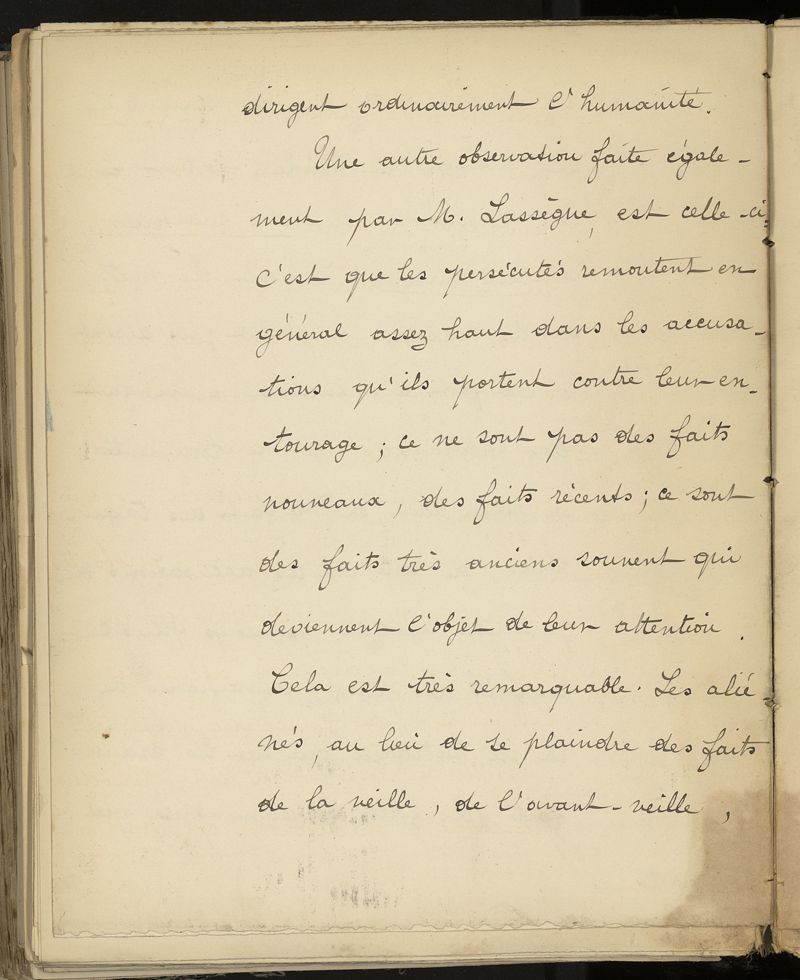 dirigent ordinairement l'humanité.
Une autre observation faite égale-
ment par M. Lassègue, est celle-ci:
c'est que les persécutés remontent en
général assez haut dans les accusa-
tions qu'ils portent contre leur en-
tourage; ce ne sont pas des faits
nouveaux, des faits récents; ce sont
des faits très anciens souvent qui
deviennent l'objet de leur attention.
Cela est très remarquable. Les alié-
nés, au lieu de se plaindre des faits
de la veille, de l'avant-veille,